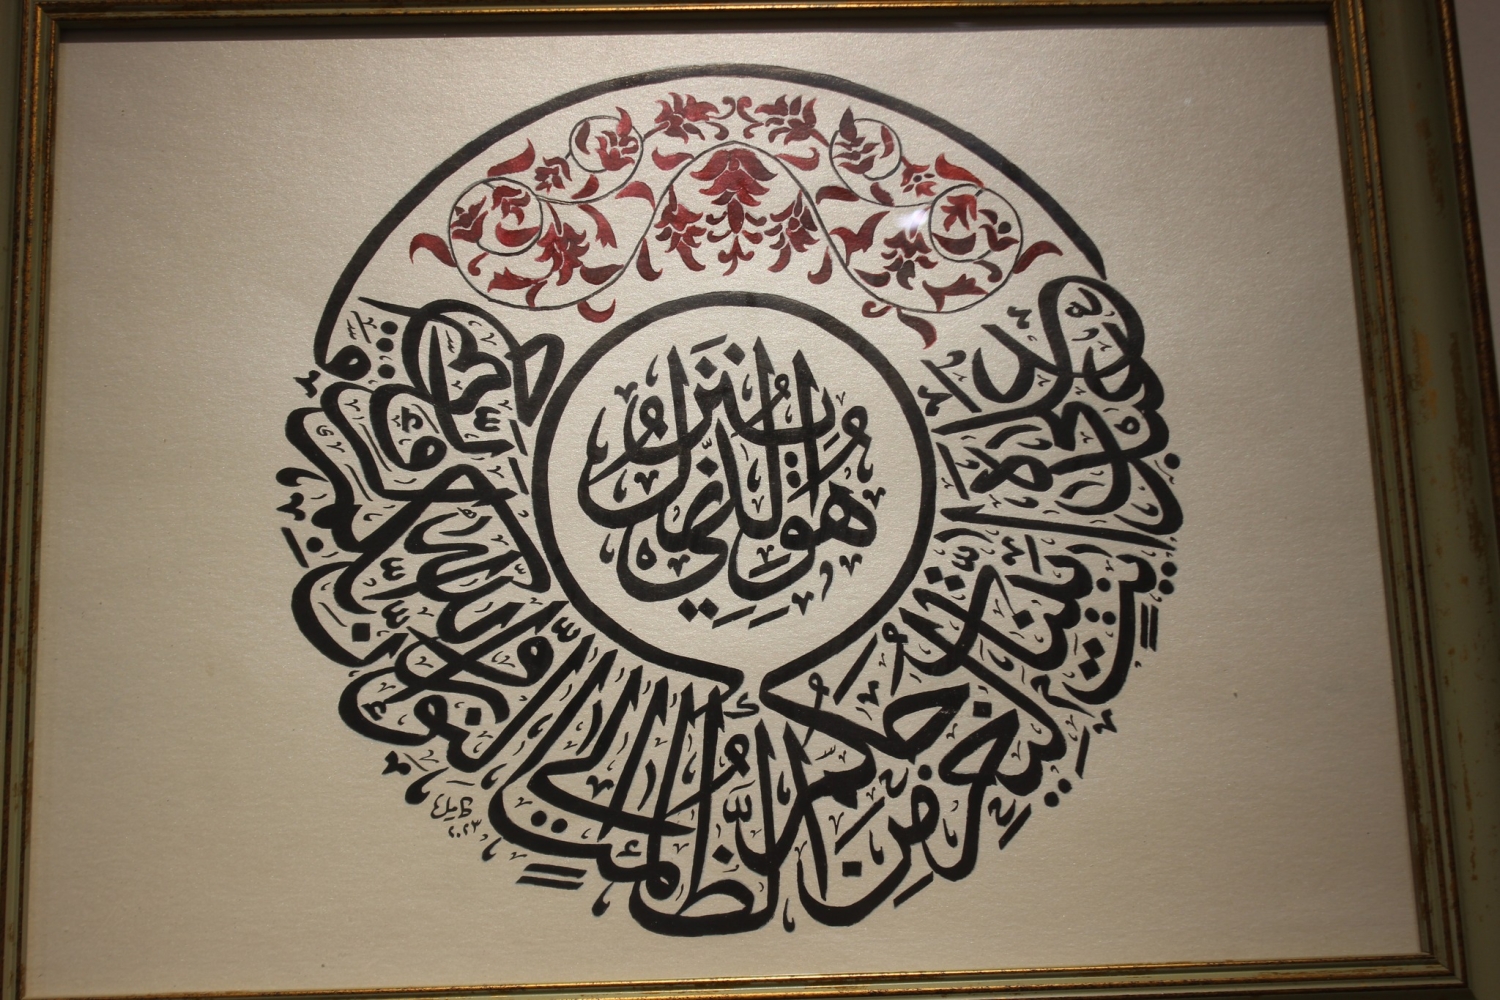 هُوَ الَّذِي يُنَزِّلُ
عَلَىٰ عَبْدِهِ آيَاتٍ بَيِّنَاتٍ لِيُخْرِجَكُمْ مِنَ الظُّلُمَاتِ إِلَى النُّورِ وَإِنَّ اللَّهَ بِكُمْ لَرَءُوفٌ رَحِيمٌ
٢٠٢٣